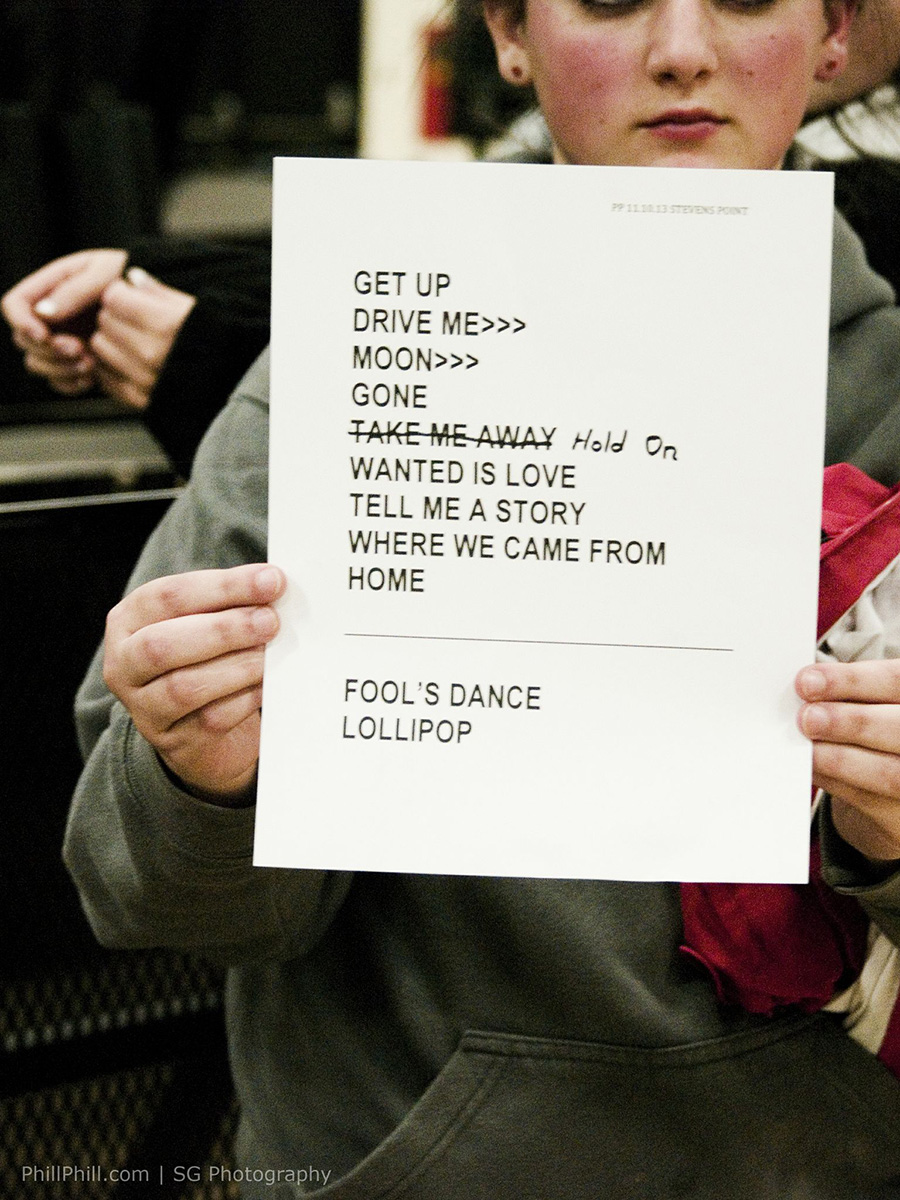 PP 11.10.13 STEVENS POINT
GET UP
DRIVE ME>>>
MOON>>>
GONE
TAKE ME AWAY Hold On
WANTED IS LOVE
TELL ME A STORY
WHERE WE CAME FROM
HOME
FOOL'S DANCE
LOLLIPOP
PhillPhill.com | SG Photography